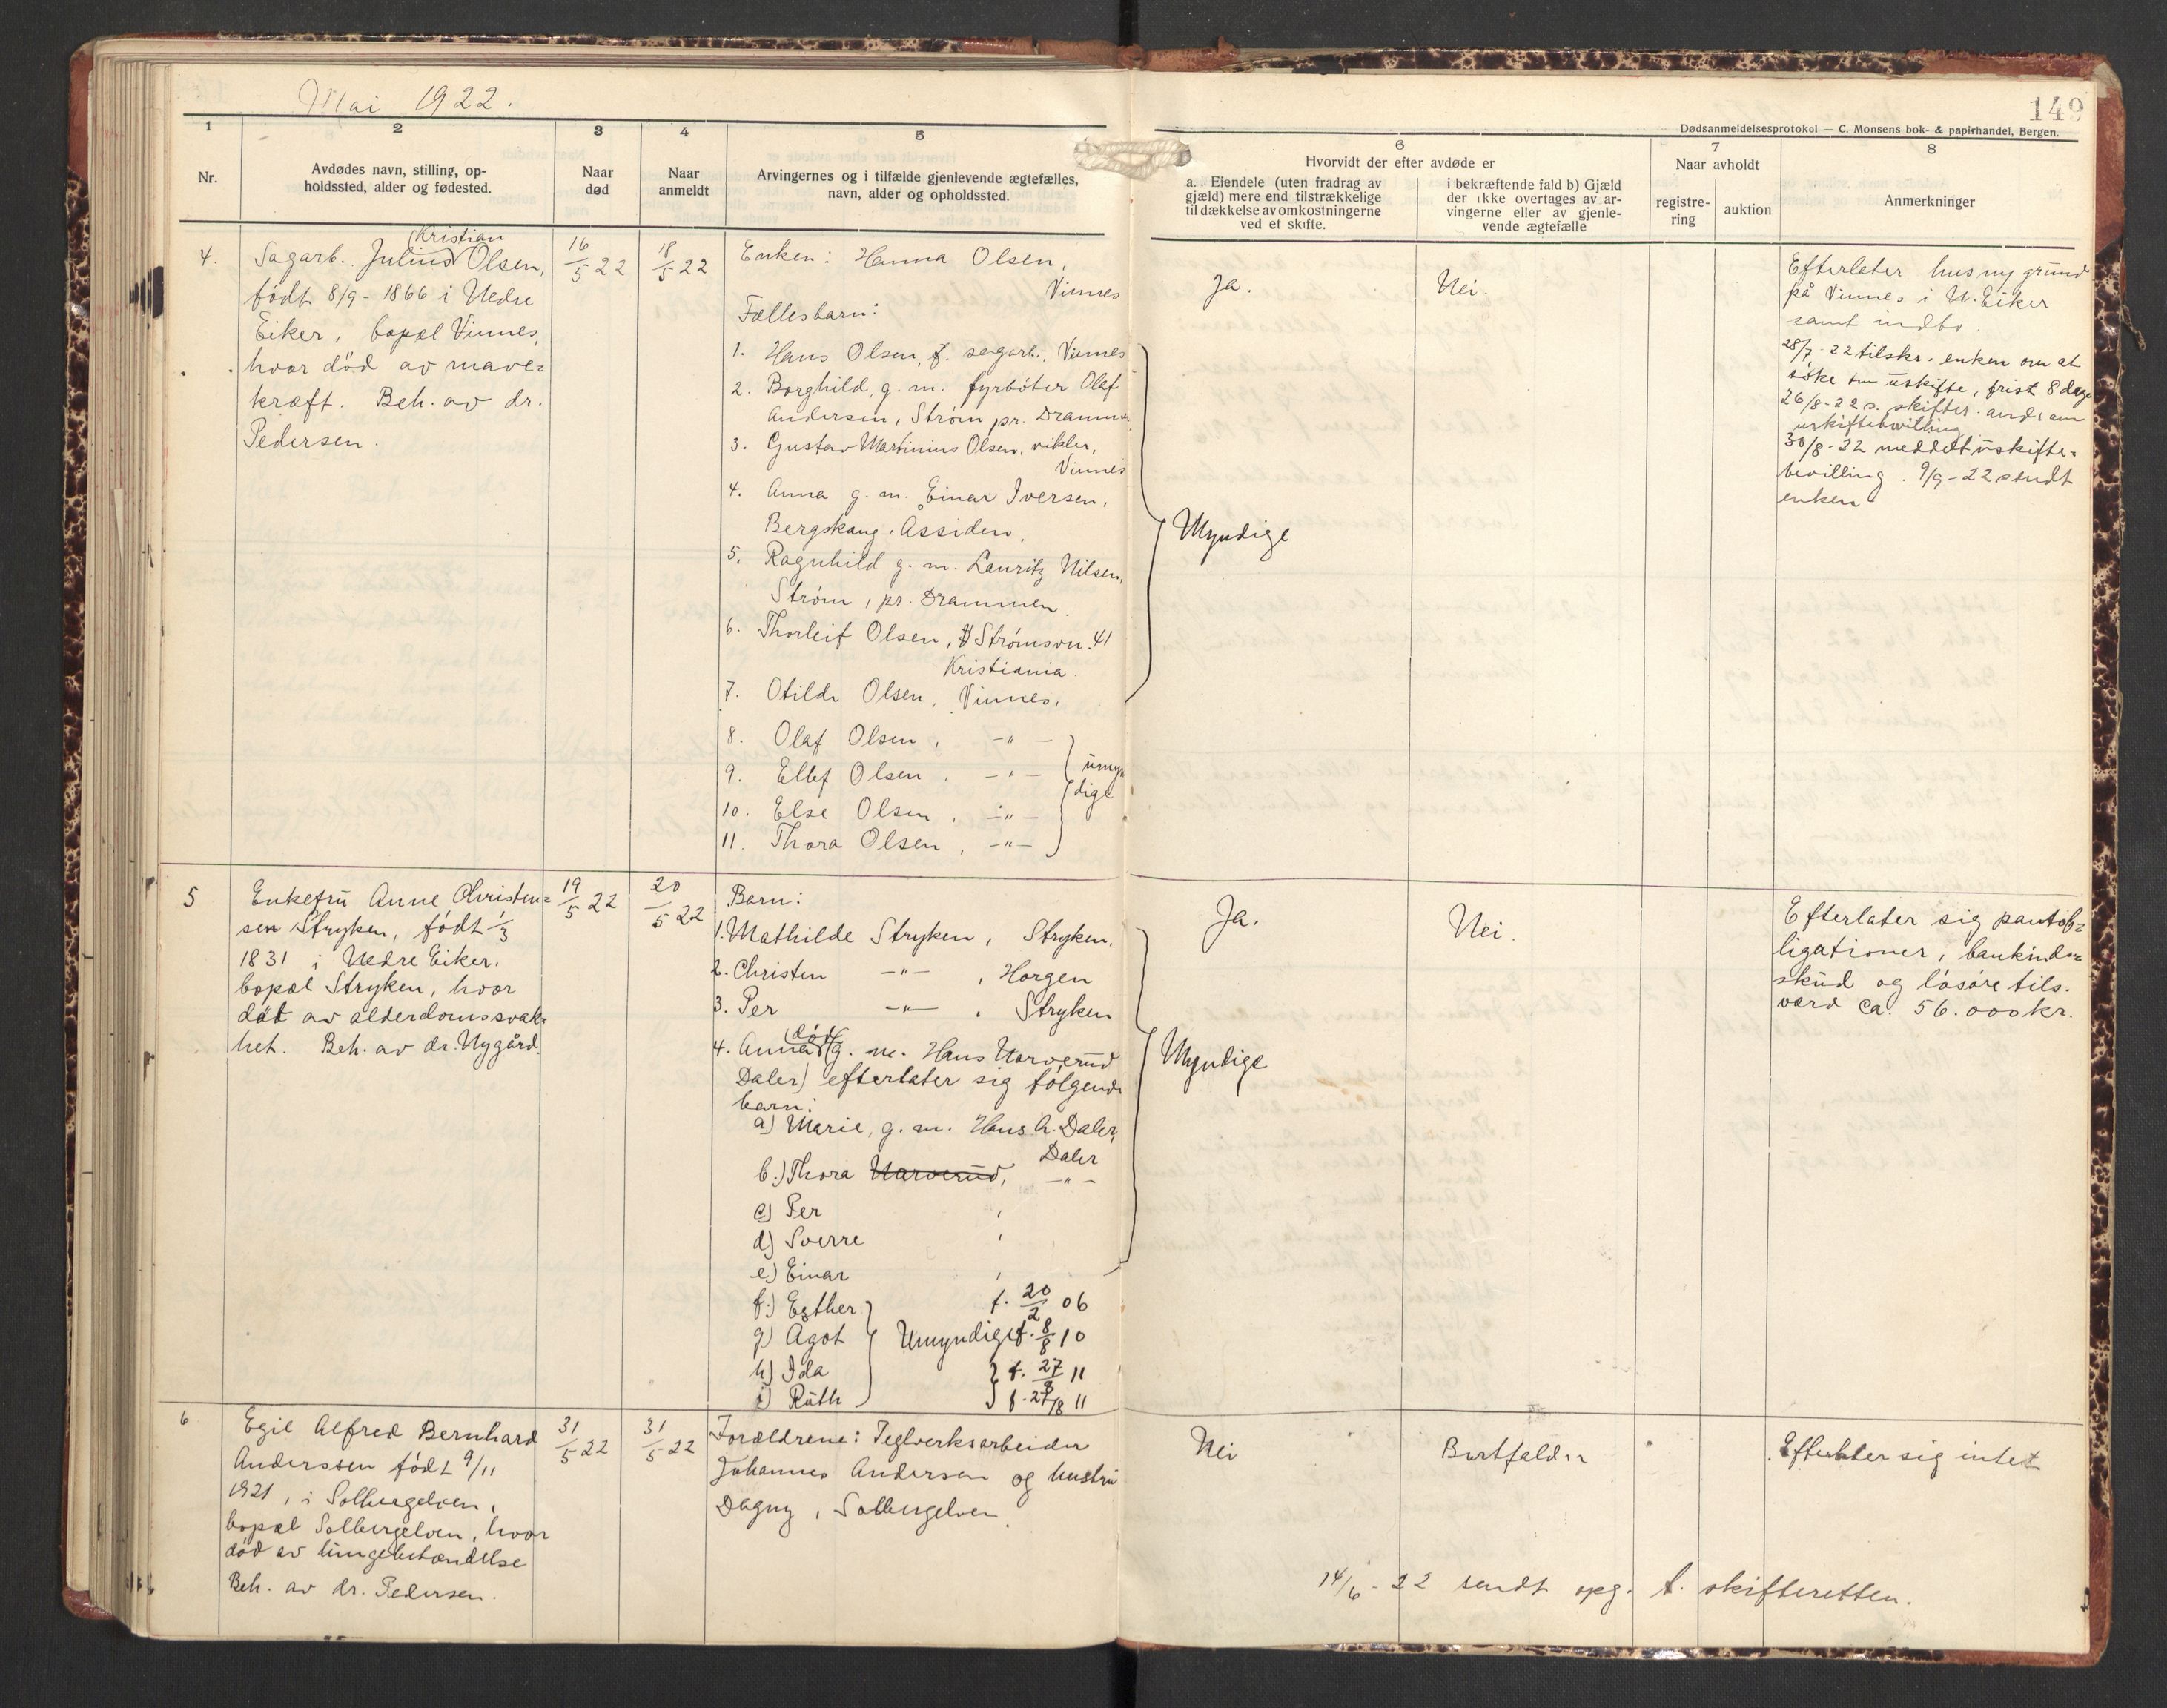 Mai 1922.
149
Dødsanmeldelsesprotokol — C. Monsens bok- & papirhandel, Bergen.
1
2
3
4
5
6
7
8
Nr.
Avdødes navn, stilling, op-
holdssted, alder og fødested.
Naar
død
Naar
anmeldt
Arvingernes og i tilfælde gjenlevende ægtefælles,
navn, alder og opholdssted.
Hvorvidt der efter avdøde er
a. Eiendele (uten fradrag av
gjæld) mere end tilstrækkelige
til dækkelse av omkostningerne
ved et skifte.
i bekræftende fald b) Gjæld
der ikke overtages av ar-
vingerne eller av gjenle-
vende ægtefælle
Naar avholdt
registre-
ring
auktion
Anmerkninger
4.
Kristian
Sagarb. Julius Olsen,
født 8/9 - 1866 i Nedre
Eiker, bopæl Vinnes,
hvor död av mave=
kræft. Beh. av dr.
Pedersen.
16/5 22
18/5 22
Enken: Hanna Olsen,
Vinnes
Fællesbarn:
1. Hans Olsen, f. sagarb., Vinnes
2. Borghild, g. m. fyrböter Olaf
Andersen, Strøm pr. Drammen
3. Gustav Martinius Olsen, vikler,
Vinnes
4. Anna g. m. Einar Iversen,
Bergskaug, Åssiden,
5. Ragnhild g. m. Lauritz Nilsen,
Strøm, pr. Drammen.
6. Thorleif Olsen, Strømsvn. 41
Kristiania.
7. Otilde Olsen, Vinnes,
8. Olaf Olsen, -"-
9. Ellef Olsen, -"-
10. Else Olsen, -"-
11. Thora Olsen, -"-
umyn
dige
Myndige
Ja.
Nei.
Efterlater hus ny grund
på Vinnes i N. Eiker
samt indbo.
28/7-22 tilskr. enken om at
söke om uskifte, frist 8 dage
26/8-22 s. skifter. and. om
uskiftebevilling
30/8-22 meddelt uskifte=
bevilling. 9/9-22 sendt
enken
5
Enkefru Anne Christen=
sen Stryken, født 1/3
1831 i Nedre Eiker.
bopæl Stryken, hvor
död av alderdomssvak=
het. Beh. av dr. Nygård.
19/5 22
20/5 22
Barn:
1. Mathilde Stryken, Stryken.
2. Christen -"-, Horgen
3. Per -"-, Stryken
4. Anna (död) (g. m. Hans Narverud
Daler) efterlater sig følgende
barn:
a) Marie, g. m. Hans A. Daler,
Daler
b.) Thora Narverud, -"-
c) Per
d) Sverre
e) Einar
f.) Esther f. 20/2 06
g) Agot f. 8/8 10
h) Ida f. 27/8 11
i) Ruth f. 27/8 11
Umyndige
Myndige
Ja.
Nei.
Efterlater sig pantob=
ligationer, bankind=
skud og lösöre tils.
værd ca. 56.000 kr.
6
Egil Alfred Bernhard
Anderssen født 9/11
1921, i Solbergelven,
bopæl Solbergelven, hvor
död av lungebetændelse
Beh. av dr. Pedersen.
31/5 22
31/5 22
Forældrene: Teglverksarbeider
Johannes Andersen og hustru
Dagny, Solbergelven.
Nei
Bortfalder
Efterlater sig intet
14/6 - 22 sendt opg. t. skifteretten.